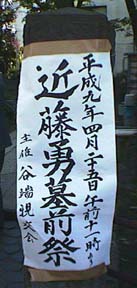 平成九年四月二十五日午前十一時より
近藤勇墓前祭
主催 谷端親交会